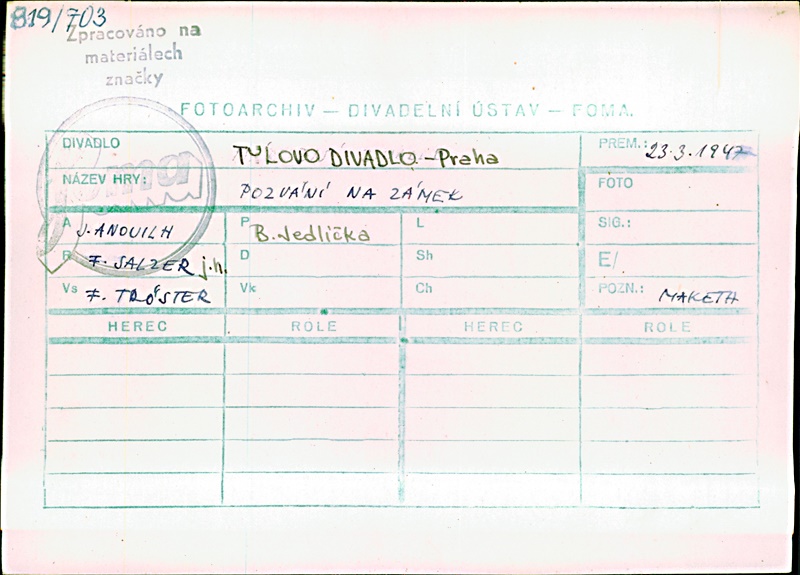 819/703
Zpracováno na
materiálech
značky
foma
FOTOARCHIV — DIVADELNÍ ÚSTAV — FOMA.
DIVADLO TYLOVO DIVADLO - Praha PREM.: 23.3.1947
NÁZEV HRY: POZVÁNÍ NA ZÁMEK FOTO
A J. ANOUILH P B. Jedlička L SIG.:
R F. SALZER j.h. D Sh E/
Vs F. TRÖSTER Vk Ch POZN.: MAKETA
HEREC ROLE HEREC ROLE